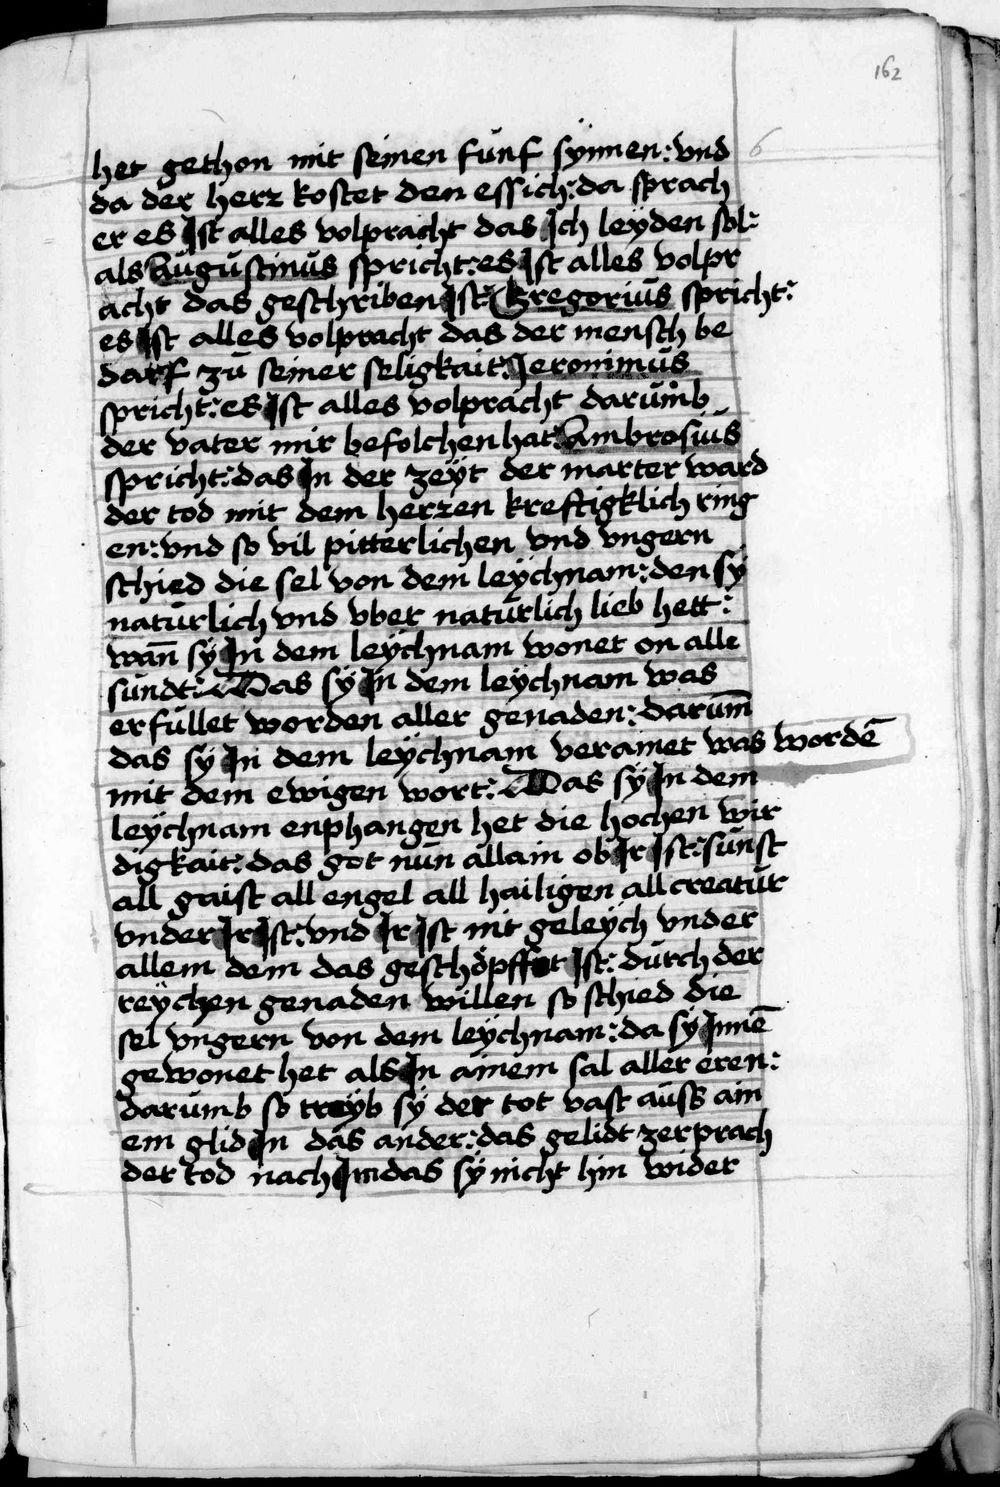 162
het gethon mit seinen fünf sÿnnen: vnd
da der herz kostet den essich: da sprach
er es Ist alles volpracht das Ich leyden sol:
als Augustinus spricht: es Ist alles volpr
acht das geschriben Ist: Gregorius spricht:
es Ist alles volpracht das der mensch be
darf zu seiner seligkait: Jeronimus
spricht: es Ist alles volpracht darumb
der vater mir befolchen hat: Ambrosius
spricht: das In der zeÿt der marter ward
der tod mit dem herzen kreftigklich ring
en: vnd so vil pitterlichen vnd vngern
schied die sel von dem leÿchnam: den sÿ
natürlich vnd vber natürlich lieb hett:
wan̄ sÿ In dem leÿchnam wonet on alle
sündt: Das sÿ In dem leÿchnam was
erfüllet worden aller genaden: darum̄
das sÿ In dem leÿchnam verainet was wordē
mit dem ewigen wort: Das sÿ In dem
leÿchnam enphangen het die hochen wir
digkait: das got nün allain ob Ir Ist: sünst
all gaist all engel all hailigen all creatür
vnder Ir Ist: vnd Ir Ist nit geleÿch vnder
allem dem das geschöpfft Ist: durch der
reÿchen genaden willen so schied die
sel vngern von dem leÿchnam: da sÿ Innē
gewonet het als In ainem sal aller eren:
darumb so treyb sÿ der tot vast auss ain
em glid In das ander: das gelidt zerprach
der tod nach Im das sÿ nicht hin wider